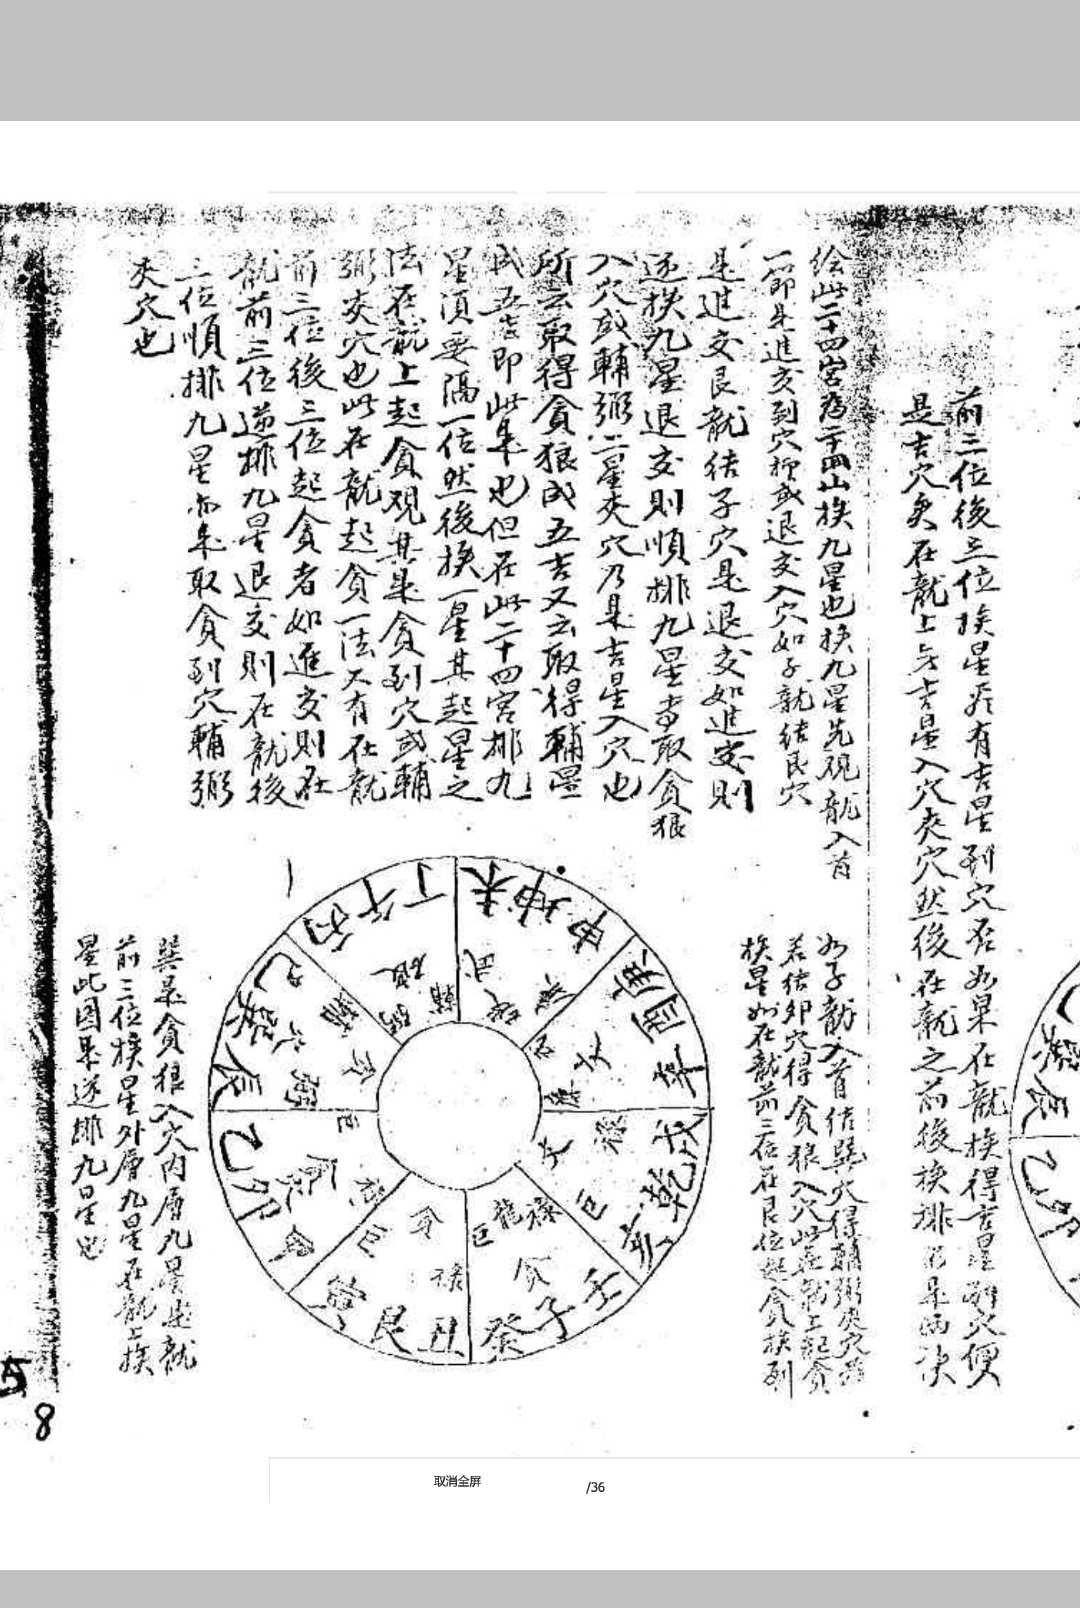 前三位後三位挨星應有吉星到穴否如果在龍挨得吉星到穴便
是吉穴矣在龍上無吉星入穴夾穴然後在龍之前後挨排若是兩次
绘此二十四宮為二十四山挨九星也挨九星先观龍入首
一節是進交到穴抑或退交入穴如子龍结艮穴
是進交艮龍结子穴是退交如進交則
逆挨九星退交則順排九星者取貪狼
入穴或輔弼二星夾穴乃是吉星入穴也
所云取得貪狼成五吉又云取得輔星
成五吉即此是也但在此二十四宮排九
星須要隔一位然後挨一星其起星之
法在龍上起貪观其是貪到穴或輔
弼夾穴也此在龍起貪一法又有在龍
前三位後三位起貪者如進交則在
龍前三位逆排九星退交則在龍後
三位順排九星亦是取貪到穴輔弼
夾穴也
如子龍入首结巽穴得輔弼夾穴
若结卯穴得貪狼入穴此在龍上起貪
挨星如在龍前三位在艮位起貪挨到
巽是貪狼入穴内層九星是龍
前三位挨星外層九星在龍上挨
星此图是逆排九星也
丁午丙
未坤申
庚酉辛
戌乾亥
壬子癸
丑艮寅
乙卯
巳巽辰
巽辰
乙卯
5
8
取消全屏
/36